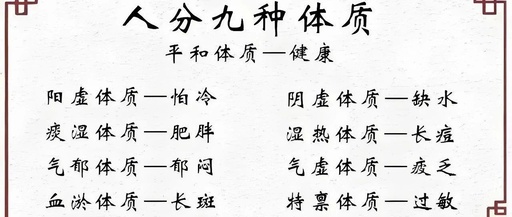 人分九种体质
平和体质—健康
阳虚体质—怕冷 阴虚体质—缺水
痰湿体质—肥胖 湿热体质—长痘
气郁体质—郁闷 气虚体质—疲乏
血淤体质—长斑 特禀体质—过敏